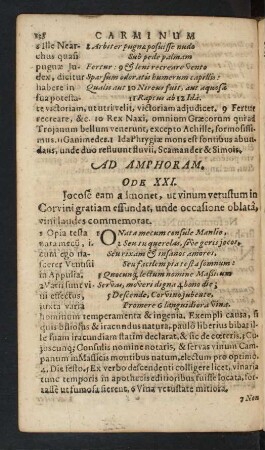 128 CARMINUM
6 Ille Near-
chus quasi
pugnæ Ju-
dex, dicitur
habere in
sua potesta-
1 Arbiter pugnæ posuisse nudo
Sub pede palmam
Fertur: 9 & leni recreare vento
Sparsum odoratis humerum capillis:
Qualis aut 10 Nireus fuit, aut aquosa
11 Raptus ab 12 Ida.
te victoriam, ut utri velit, victoriam adjudicet. 9 Fertur
recreare, &c. 10 Rex Naxi, omnium Græcorum qui ad
Trojanum bellum venerunt, excepto Achille, formosissi-
mus. 11 Ganimedes. 12 Ida Phrygiæ mons est fontibus abun-
dans, unde duo refluunt fluvii, Scamander & Simois.
AD AMPHORAM.
ODE XXI.
Jocosè eam admonet, ut vinum vetustum in
Corvini gratiam effundat, unde occasione oblatâ,
vini laudes commemorat.
1 Opia testa
nata mecũ, i.
cum ego na-
scerer Venusii
in Appulia.
2 Varii sunt vi-
ni effectus,
juxta varia
O Nata mecum consule Manlio,
2 Seu tu querelas, sive geris jocos,
Seu rixam & insanos amores,
Seu facilem pia testa somnum:
3 Quocunq; lectum nomine Massicum
Servas, moveri digna 4 bono die;
5 Descende, Corvino jubente,
Promere 6 languidiora Vina.
hominum temperamenta & ingenia. Exempli causa, si
quis biliosus & iracundus natura, paulò liberius bibat il-
le suam iracundiam statim declarat, & sic de cæteris. 3 Cu-
juscunq; Consulis nomine notaris, & servas vinum Cam-
panum in Massicis montibus natum, electum pro optimo.
4. Die festo. 5 Ex verbo descendenti colligere licet, vinaria
tunc temporis in apothecis editioribus fuisse locata, for-
tasse ut fumosa fierent. 6 Vina vetustate mitiora.
7 Non